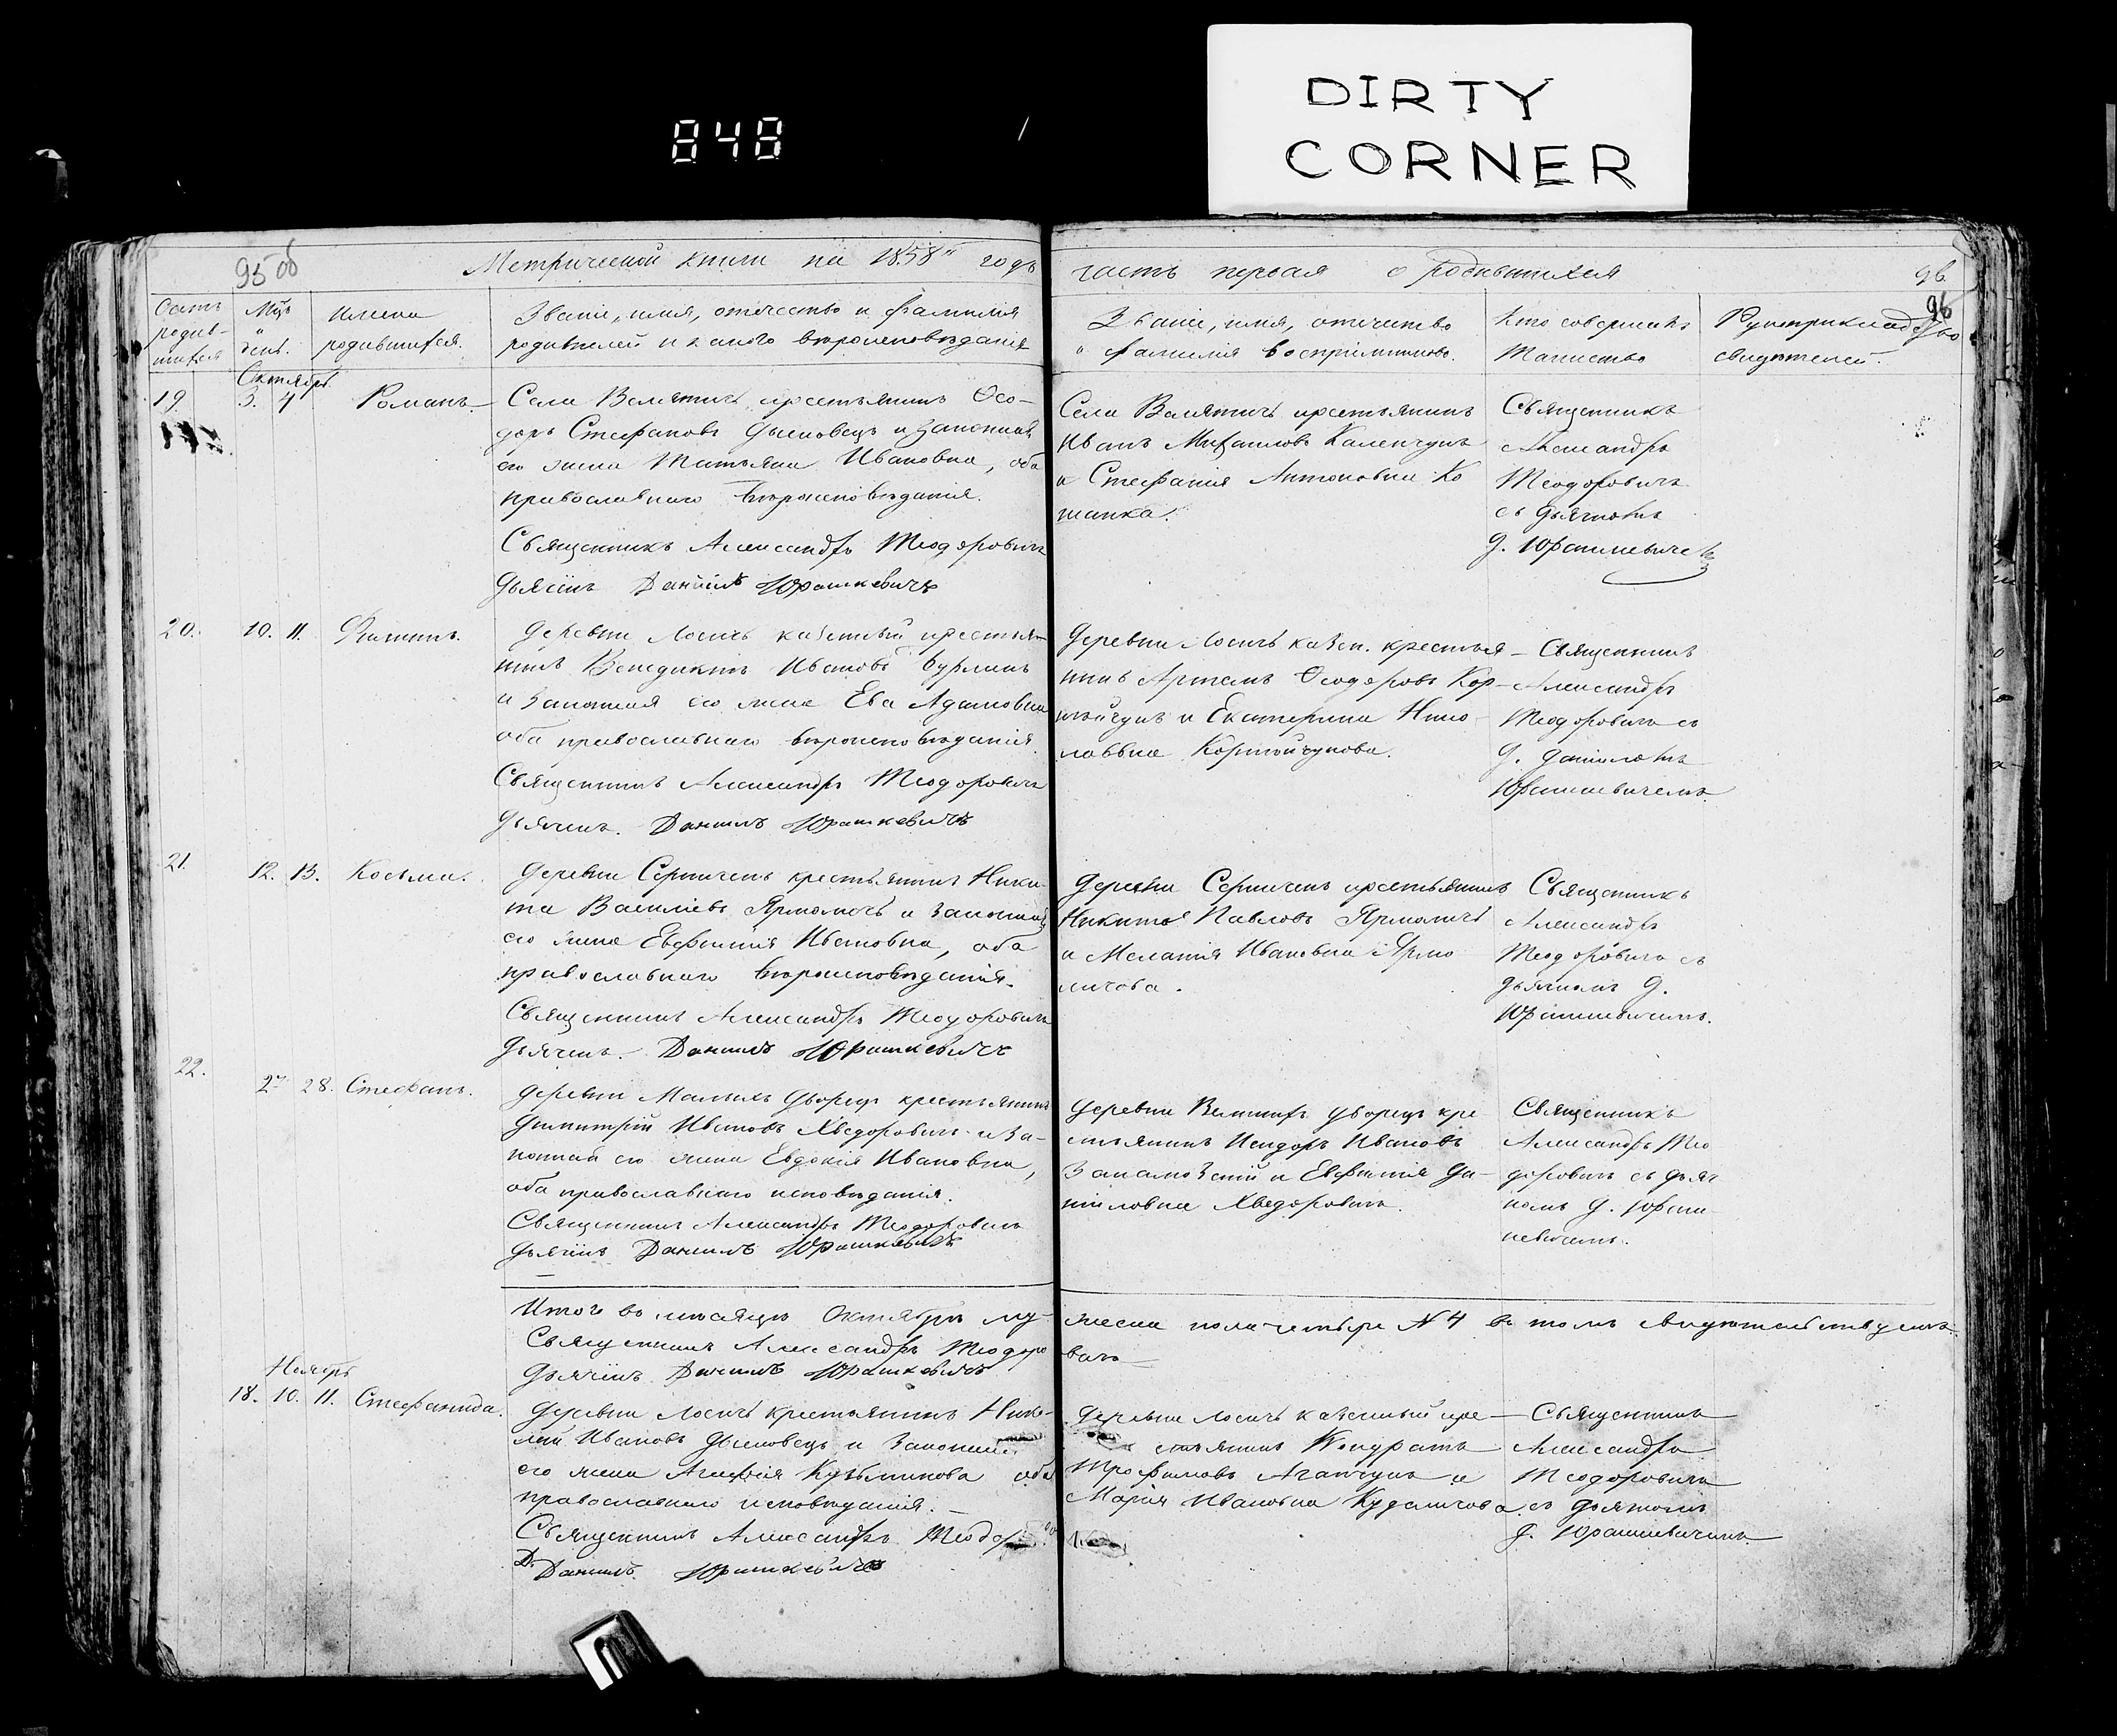 DIRTY
CORNER
848
95 об
Метрической книги на 1858й годъ
часть первая о родившихся
96
96
Счетъ родив-шихся
Мцъ и день.
Имена родившихся.
Званіе, имя, отечество и фамилія
родителей и какого вѣроисповѣданія
Званіе, имя, отечество
и фамилія воспріемниковъ.
Кто совершалъ
Таинство
Рукоприкладство
свидетелей.
Октябрь
19
3. 4
Романъ.
Села Велятичъ крестьянинъ Ѳео-
доръ Стефановъ Дыковецъ и законная
его жена Татьяна Ивановна, оба
православнаго вѣроисповѣданія.
Священникъ Александръ Теодоровичъ
Дьячекъ Даніилъ Юрашкевичъ
Села Велятичъ крестьянинъ
Иванъ Михаиловъ Каленчукъ
и Стефанія Антоновна Ко
шанка.
Священникъ
Александръ
Теодоровичъ
съ дьячкомъ
Д. Юрашкевичемъ
20.
10. 11.
Филиппъ.
Деревни Лосичъ казенный крестья-
нинъ Венедиктъ Ивановъ Бурлякъ
и законная его жена Ева Адамовна
оба православнаго вѣроисповѣданія
Священникъ Александръ Теодоровичъ
Дьячекъ. Даніилъ Юрашкевичъ
Деревни Лосичъ казен. крестья-
нинъ Артемъ Ѳеодоровъ Кор-
нейчукъ и Екатерина Нико-
лаевна Корнейчукова.
Священникъ
Александръ
Теодоровичъ съ
Д. Даніиломъ
Юрашкевичемъ.
21.
12. 13.
Косьма.
Деревни Серничекъ крестьянинъ Ники-
та Василіевъ Ярмоличъ и законная
его жена Евфимія Ивановна, оба
православнаго вѣроисповѣданія.
Священникъ Александръ Теодоровичъ
Дьячекъ. Даніилъ Юрашкевичъ
Деревни Серничекъ крестьянинъ
Никита Павловъ Ярмоличъ
и Меланія Ивановна Ярмо
личова.
Священникъ
Александръ
Теодоровичъ съ
дьячкомъ Д.
Юрашкевичемъ.
22.
27 28.
Стефанъ.
Деревни Малыхъ Дворецъ крестьянинъ
Димитрій Ивановъ Хведоровичъ и за-
конная его жена Евдокія Ивановна,
оба православнаго исповѣданія.
Священникъ Александръ Теодоровичъ
Дьячекъ Даніилъ Юрашкевичъ
Деревни Дворецъ кре-
стьянинъ Исидоръ Ивановъ
и Евфимія Да-
ніиловна Хведоровичъ.
Священникъ
Александръ Тео
доровичъ съ дьяч
комъ Д. Юраш
кевичемъ.
Итого въ месяцѣ Октябрѣ му-
жеска пола четыре N 4 въ томъ свидетельствуемъ.
Священникъ Александръ Теодоро
вичъ
Дьячекъ Даніилъ Юрашкевичъ
Ноябрь
18. 10. 11.
Стефанида.
Деревни Лосичъ крестьянинъ Нико-
лай Ивановъ Дыковецъ и законная
его жена Агафія Кузьминова оба
православнаго исповѣданія.
Священникъ Александръ Теодоро
Д. Даніилъ Юрашкевичъ
Деревни Лосичъ казенный кре-
стьянинъ Кондратъ
Трофимовъ Агапчукъ и
Марія Ивановна Кудаличова
Священникъ
Александръ
Теодоровичъ
съ дьячкомъ
Д. Юрашкевичемъ